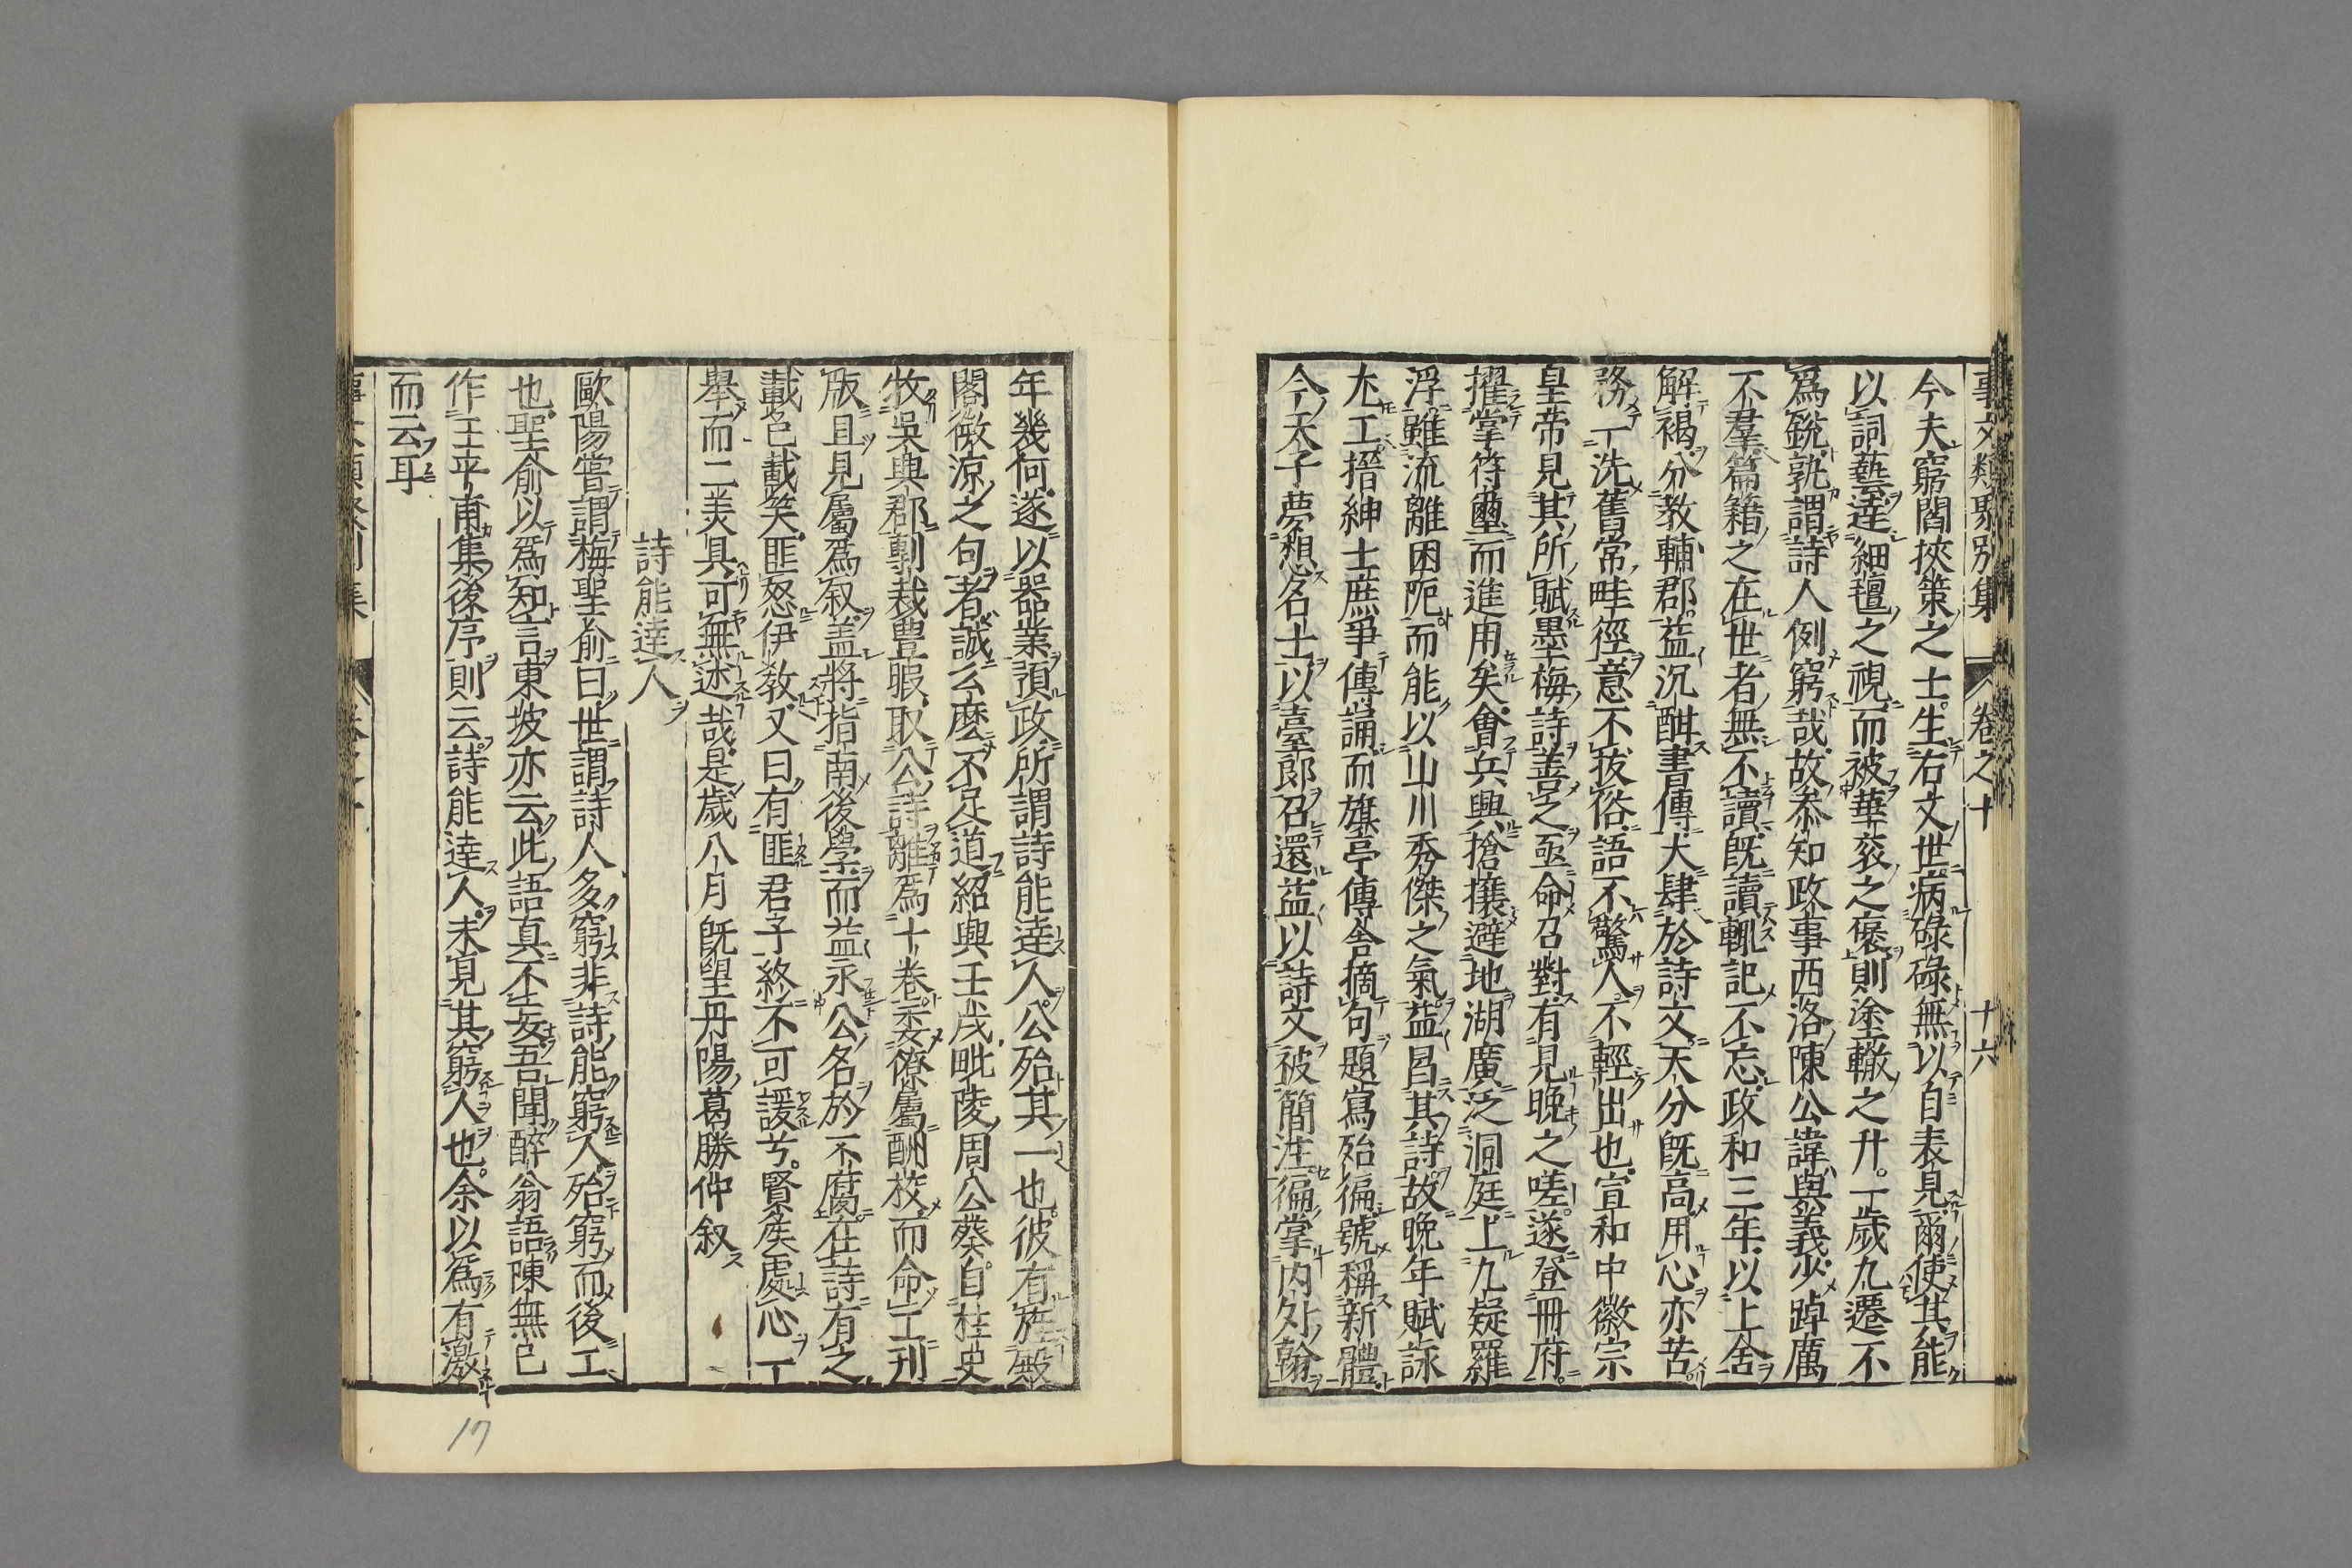 事文類聚別集 卷之十 十六
今夫窮閻挾策之士生右文世病碌碌無以自表見爾使其能
以詞藝達細氊之視而被華衮之褒則塗轍之升一歲九遷不
爲銳孰謂詩人例窮哉故參知政事西洛陳公諱與義少踔厲
不羣篇籍之在世者無不讀既讀輒記不忘政和三年以上舍
解褐分教輔郡益沉酣書傳大肆於詩文天分既高用心亦苦
務一洗舊常畦徑意不拔俗語不驚人不輕出也宣和中徽宗
皇帝見其所賦墨梅詩善之亟命召對有見晚之嗟遂登冊府
擢掌符璽而進用矣會兵興搶攘避地湖廣泛洞庭上九疑羅
浮雖流離困阨而能以山川秀傑之氣益昌其詩故晚年賦詠
尤工搢紳士庶爭傳誦而旗亭傳舍摘句題寫殆徧號稱新體
今天子夢想名士以臺郎召還益以詩文被簡注徧掌内外翰
年幾何遂以器業預政所謂詩能達人公殆其一也彼有旌殿
閣微凉之句者誠么麽不足道紹興壬戌毗陵周公葵自柱史
牧吳興郡剸裁豊暇取公詩離爲十卷委僚屬酬校而命工刊
版且見屬爲叙盖將指南後學而益永公名於不腐在詩有之
載色載笑匪怒伊敎又曰有匪君子終不可諼兮賢矦處心一
舉而二美具可無述哉是歲八月既望丹陽葛勝仲叙
詩能達人
歐陽嘗謂梅聖俞曰世謂詩人多窮非詩能窮人殆窮而後工
也聖俞以爲知言東坡亦云此語真不妄吾聞醉翁語陳無已
作王平甫集後序則云詩能達人未見其窮人也余以爲有激
而云耳
17